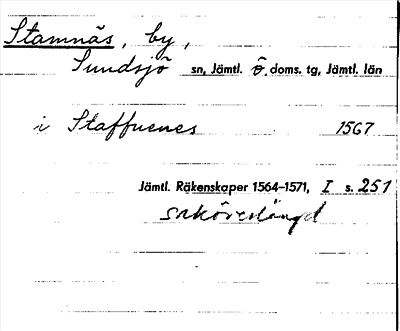 Stamnäs, by,
Sundsjö sn, Jämtl. ö. doms. tg, Jämtl. län
i Staffuenes 1567
Jämtl. Räkenskaper 1564–1571, I s. 251
saköreslängd